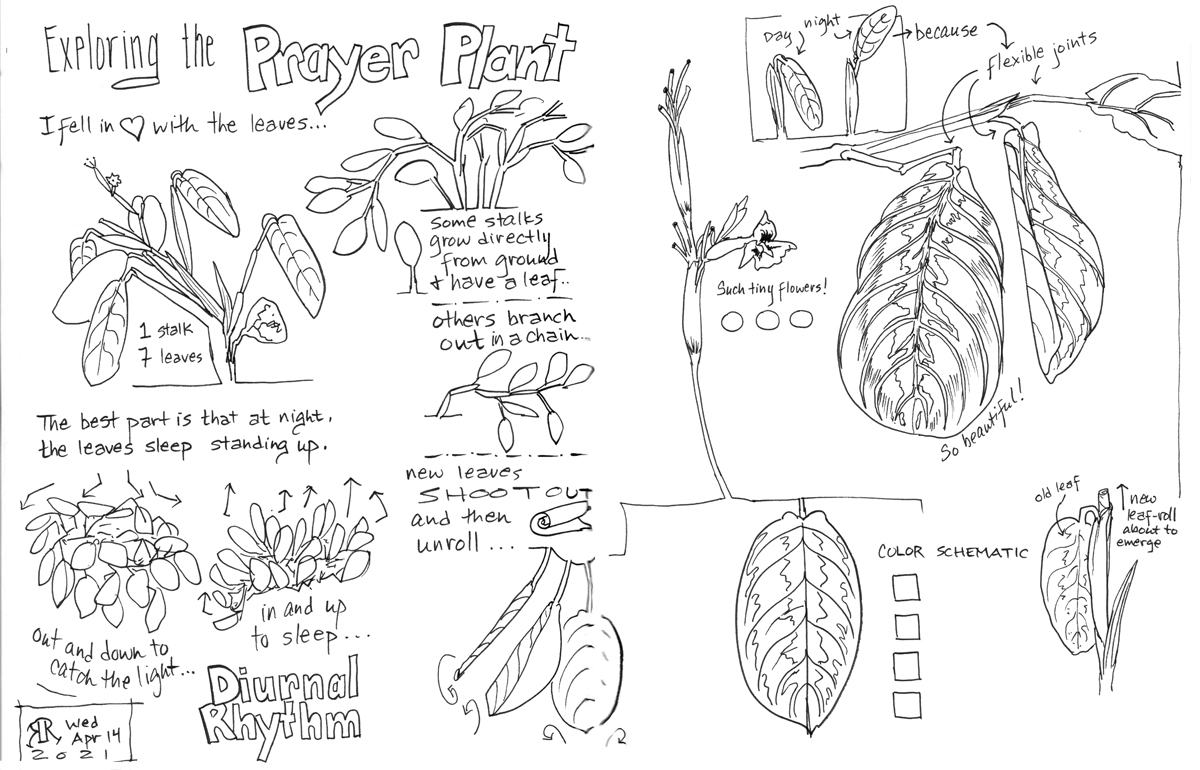 Exploring the Prayer Plant
I fell in ♡ with the leaves...
1 stalk
7 leaves
some stalks
grow directly
from ground
+ have a leaf..
others branch
out in a chain...
The best part is that at night,
the leaves sleep standing up.
new leaves
SHOOT OUT
and then
unroll ...
Out and down to
catch the light...
in and up
to sleep...
Diurnal
Rhythm
RR Wed
Apr 14
2021
Day
night
because
flexible joints
Such tiny flowers!
So beautiful!
COLOR SCHEMATIC
old leaf
new
leaf-roll
about to
emerge